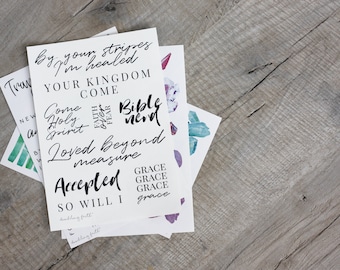 By your stripes
I'm healed
YOUR KINGDOM
COME
Come
Holy
Spirit
FAITH
over
FEAR
Bible
nerd
Loved beyond
measure
Accepted
SO WILL I
GRACE
GRACE
GRACE
grace